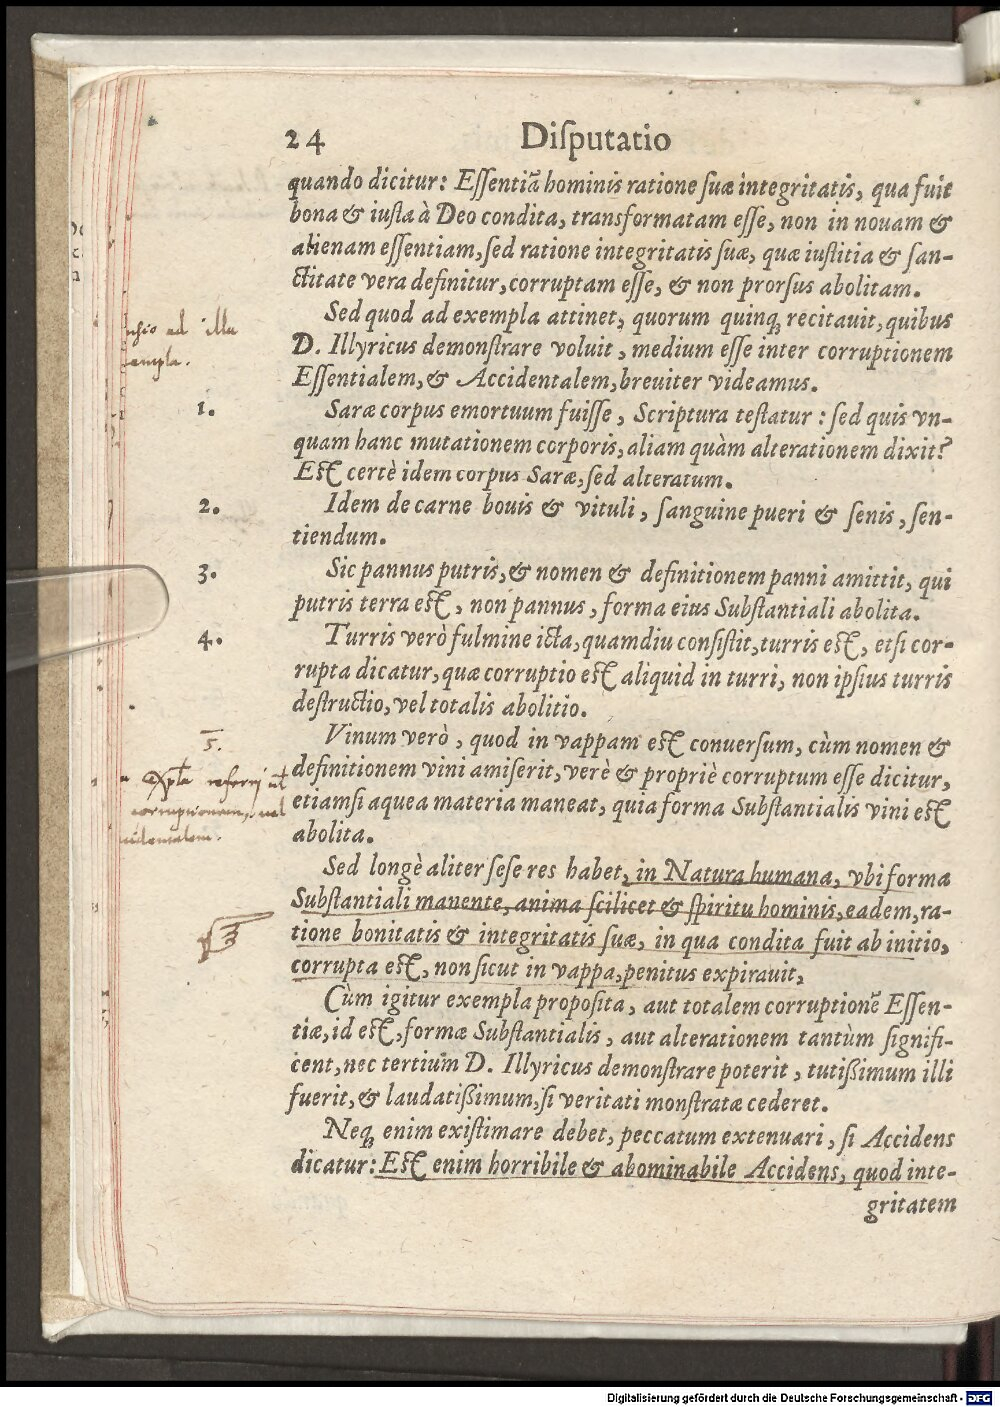 24 Diſputatio
quando dicitur: Eſſentiã hominis ratione ſuæ integritatis, qua fuit
bona & iuſta à Deo condita, transformatam eſſe, non in nouam &
alienam eſſentiam, ſed ratione integritatis ſuæ, quæ iuſtitia & ſan-
ctitate vera definitur, corruptam eſſe, & non prorſus abolitam.
Sed quod ad exempla attinet, quorum quinq; recitauit, quibus
D. Illyricus demonſtrare voluit, medium eſſe inter corruptionem
Eſſentialem, & Accidentalem, breuiter videamus.
ad illa
1.
Saræ corpus emortuum fuiſſe, Scriptura teſtatur: ſed quis vn-
quam hanc mutationem corporis, aliam quàm alterationem dixit?
Eſt certè idem corpus Saræ, ſed alteratum.
2.
Idem de carne bouis & vituli, ſanguine pueri & ſenis, ſen-
tiendum.
3.
Sic pannus putris, & nomen & definitionem panni amittit, qui
putris terra eſt, non pannus, forma eius Subſtantiali abolita.
4.
Turris verò fulmine icta, quamdiu conſiſtit, turris eſt, etſi cor-
rupta dicatur, quæ corruptio eſt aliquid in turri, non ipſius turris
deſtructio, vel totalis abolitio.
5.
Vinum verò, quod in vappam eſt conuerſum, cùm nomen &
definitionem vini amiſerit, verè & propriè corruptum eſſe dicitur,
etiamſi aquea materia maneat, quia forma Subſtantialis vini eſt
abolita.
Sed longè aliter ſeſe res habet, in Natura humana, vbi forma
Subſtantiali manente, anima ſcilicet & ſpiritu hominis, eadem, ra-
tione bonitatis & integritatis ſuæ, in qua condita fuit ab initio,
corrupta eſt, non ſicut in vappa, penitus expirauit,
Cùm igitur exempla propoſita, aut totalem corruptionẽ Eſſen-
tiæ, id eſt, formæ Subſtantialis, aut alterationem tantùm ſignifi-
cent, nec tertium D. Illyricus demonſtrare poterit, tutißimum illi
fuerit, & laudatißimum, ſi veritati monſtratæ cederet.
Neq; enim exiſtimare debet, peccatum extenuari, ſi Accidens
dicatur: Eſt enim horribile & abominabile Accidens, quod inte-
gritatem
Digitalisierung gefördert durch die Deutsche Forschungsgemeinschaft - DFG